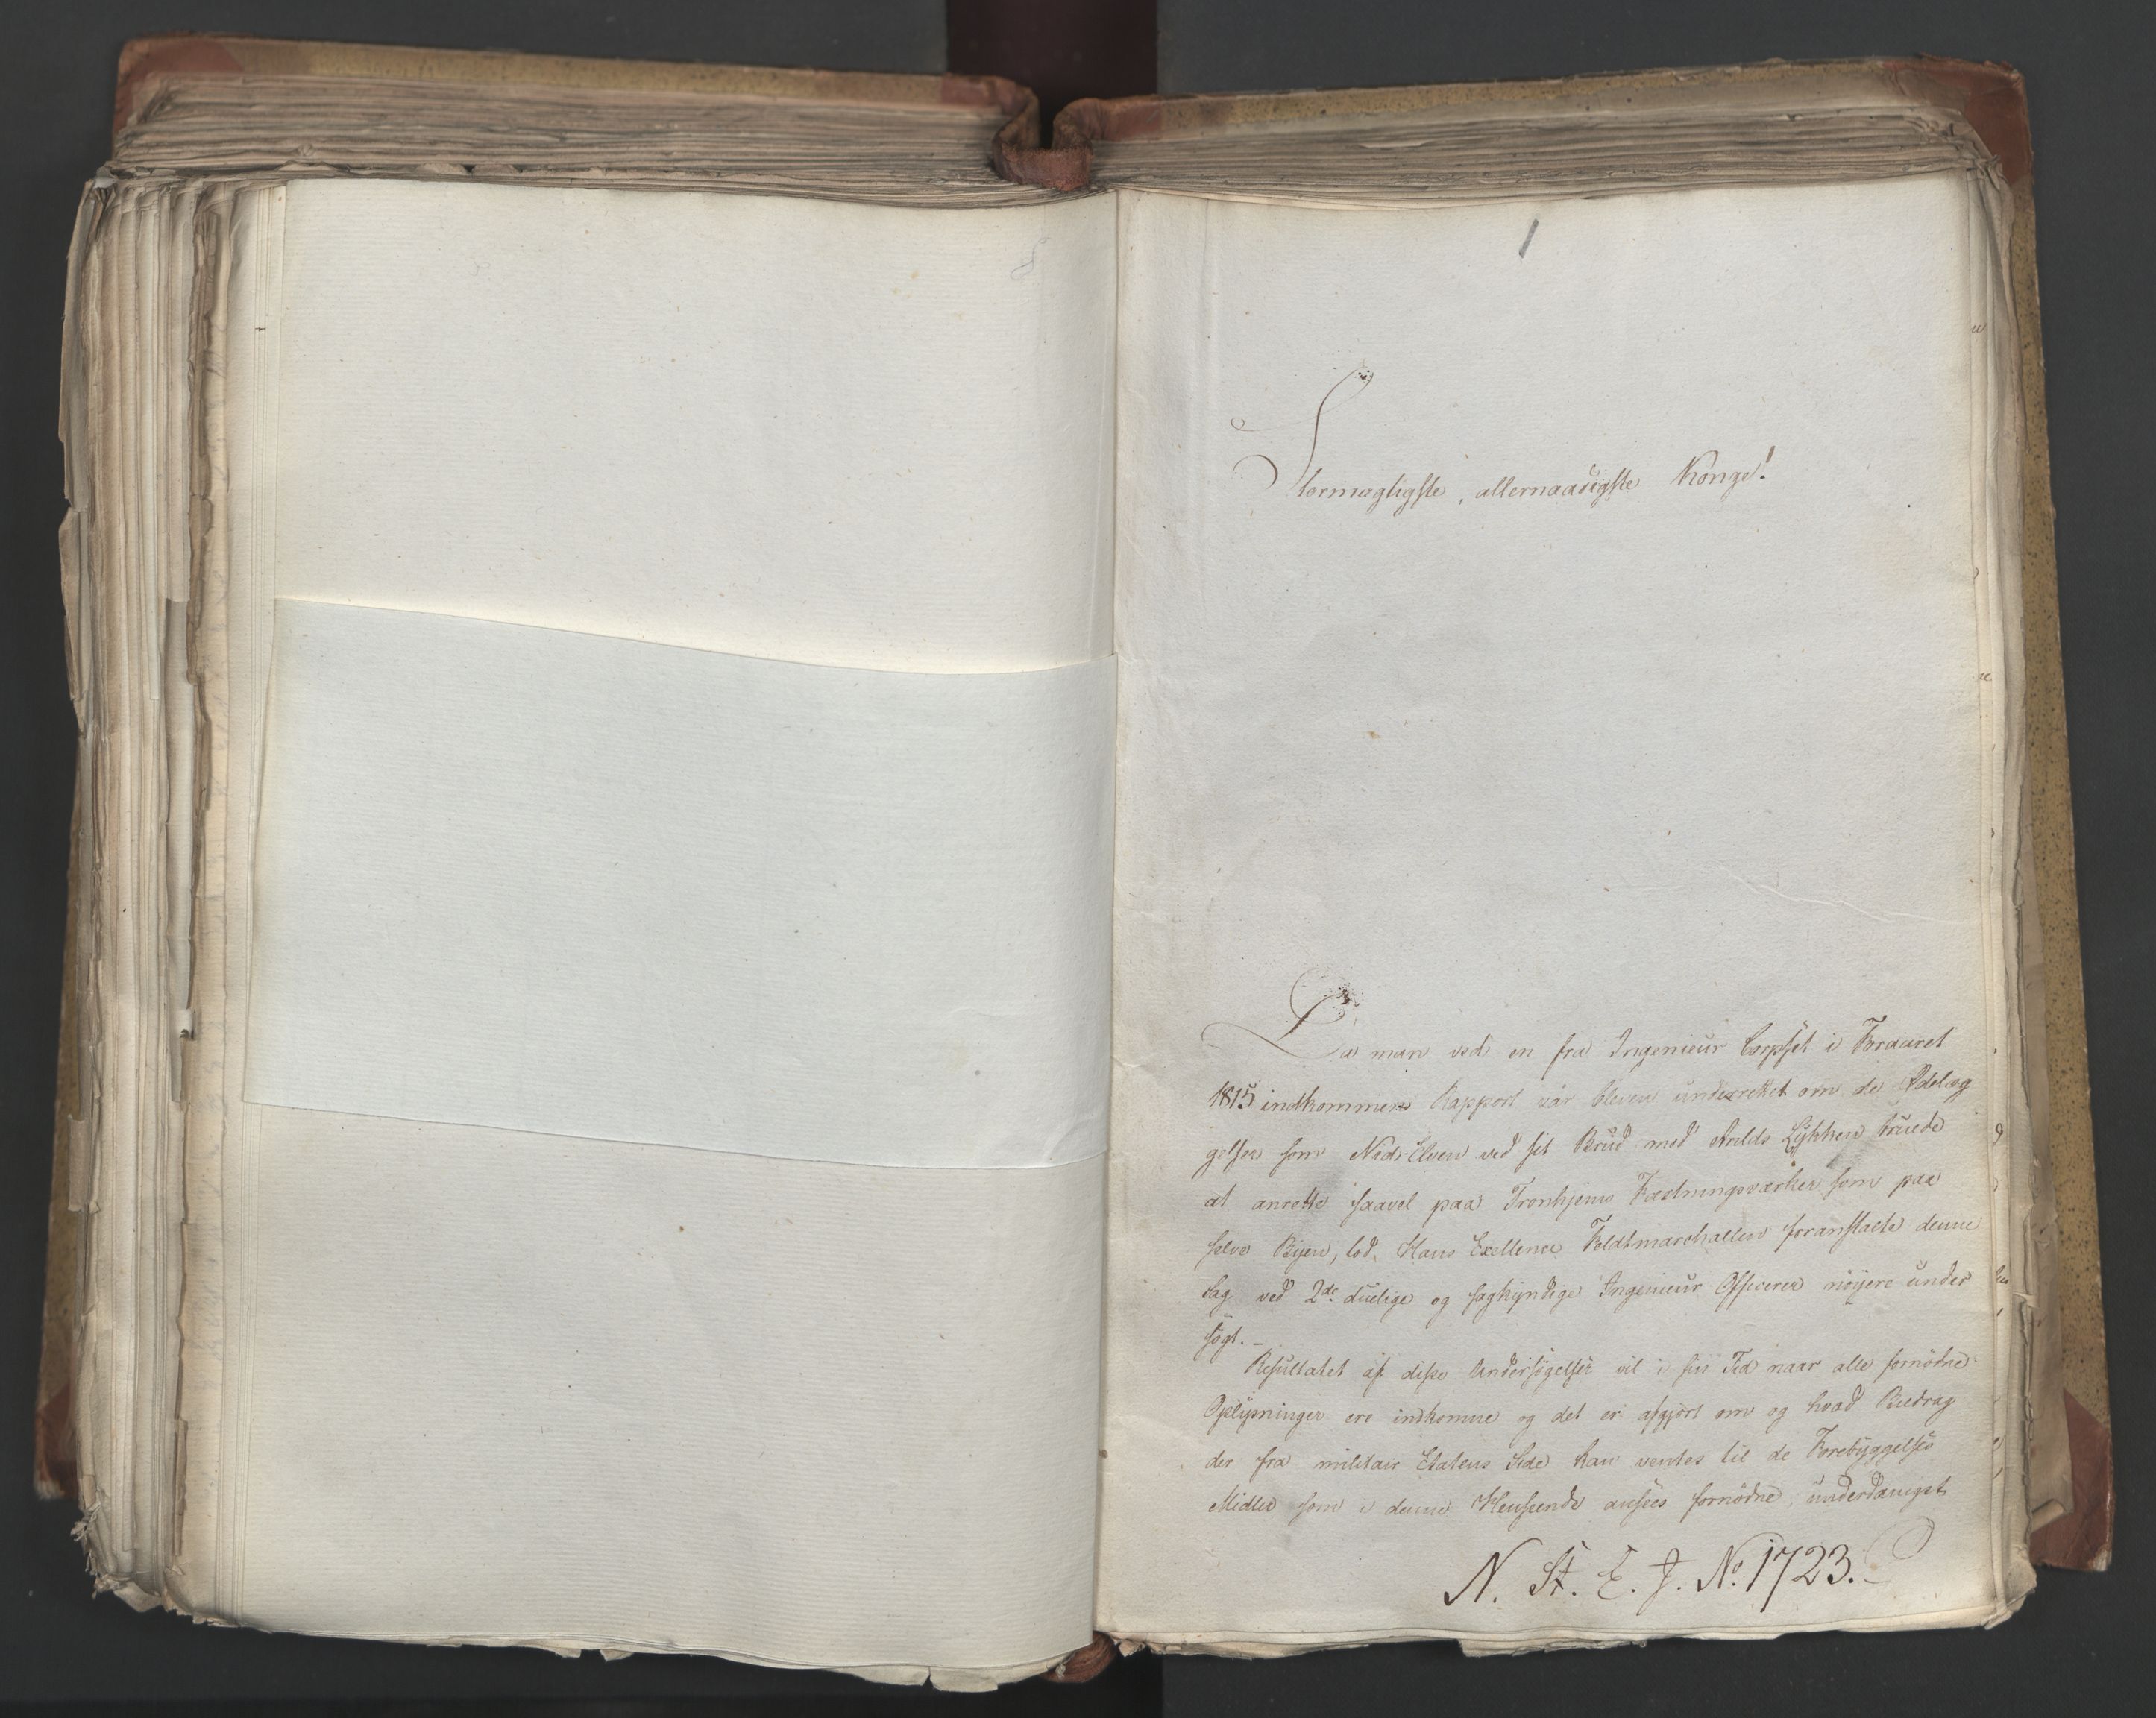 1
Stormægtigste, allernaadigste Konge!
Da man ved en fra Ingenieur Corpset i Foraaret
1815 indkommen Rapport var bleven underrettet om de Ødelæg
gelser som Nid-Elven ved sit Brud med Arilds Løkken truede
at anrette saavel paa Tronhjems Fæstningsværker som paa
selve Byen, lod Hans Exellence Feldtmarschallen foranstalte denne
Sag ved 2de duelige og sagkyndige Ingenieur Officerer nöyere under
søgt. –
Resultatet af disse Undersøgelser vil i sin Tid naar alle fornødne
Oplysninger ere indkomne og det er afgjort om og hvad Biedrag
der fra militair Etatens Side kan ventes til de Forebyggelses
Midler som i denne Henseende ansees fornødne, underdanigst
N. St. E. J. No. 1723.